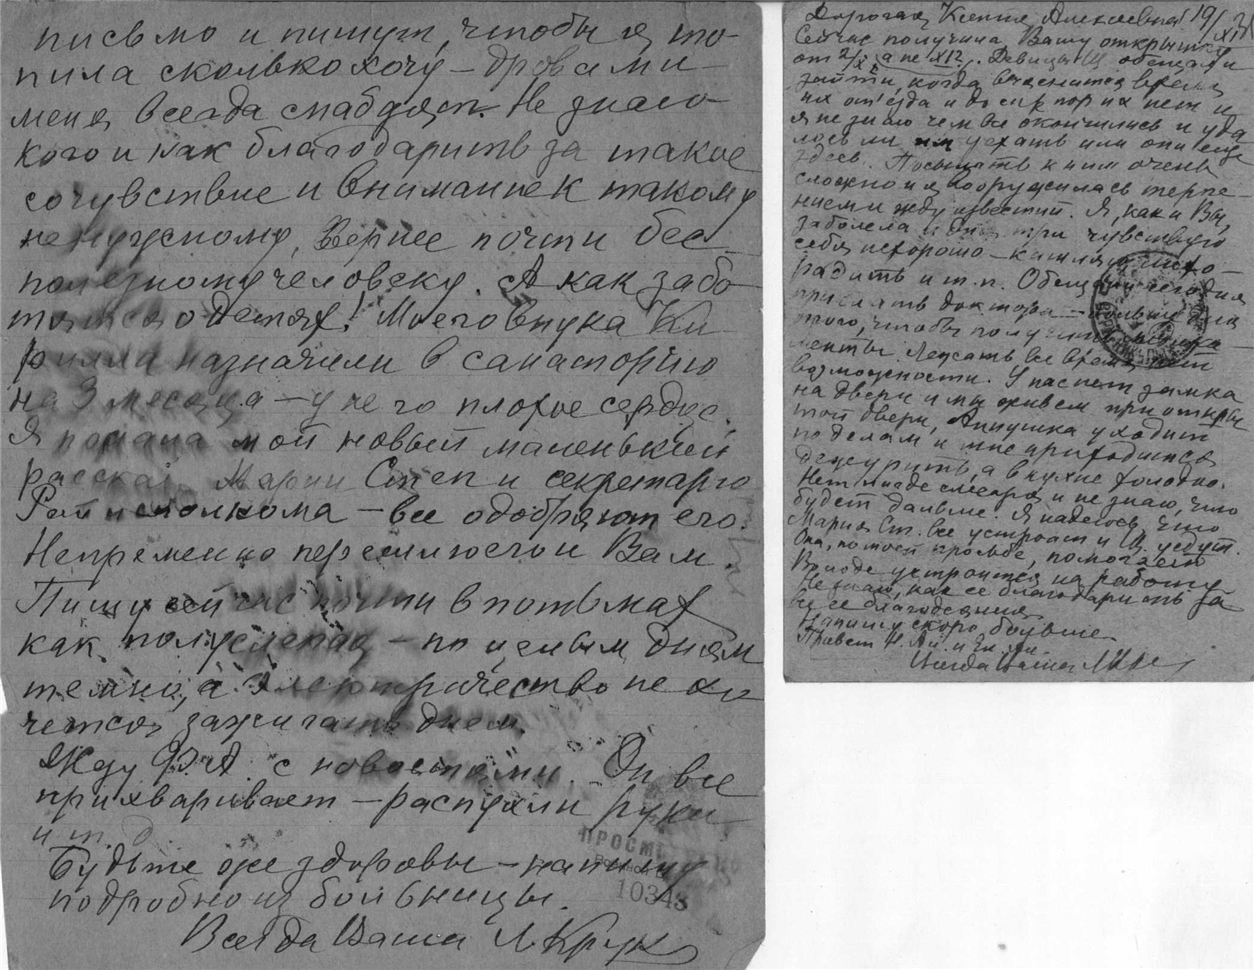 письмо и пишут, чтобы я то-
пила сколько хочу – дровами
меня всегда снабдят. Не знаю
кого и как благодарить за такое
сочувствие и внимание к такому
ненужному, вернее почти бес-
полезному человеку. А как забо-
тятся о детях! Моего внука Ки-
рилла назначили в санаторию
на 3 месяца – у него плохое сердце.
Я послала мой новый маленький
рассказ Марии Степ и секретарю
Райисполкома – все одобряют его.
Непременно перешлю его и Вам.
Пишу сейчас почти в потьмах
как полуслепая – по целым дням
темно, а электричество не хо-
чется зажигать днем.
Жду Ф.А. с новостями. Он все
прихварывает – распухли руки
и т.
Будьте же здоровы – напишу
подробно из больницы.
Всегда Ваша Л Крук
ПРОСМОТРЕНО
10348
Дорогая Ксения Алексеевна! 19/XII
Сейчас получила Вашу открытку
от 2/X, а не XII. Девицы обещали
зайти, когда выяснится время
их от'езда и до сих пор их нет и
я не знаю чем все окончилось и уда-
лось ли им уехать или они еще
здесь. Посылать к ним очень
сложно и я вооружилась терпе-
нием и жду известий. Я, как и Вы,
заболела и дня три чувствую
себя нехорошо – кашляю, лихо-
радит и т.п. Обещали сегодня
прислать доктора – больше для
того, чтобы получить
менты. Лежать все время нет
возможности. У нас нет замка
на двери и мы живем при откры-
той двери, Аннушка уходит
по делам и мне приходится
дежурить, а в кухне холодно.
Нет нигде слесаря и не знаю, что
будет дальше. Я надеюсь, что
Мария Ст. все устроит и уедут.
Она, по моей просьбе, помогает
Володе устроится на работу
Не знаю, как ее благодарить за
все ее благодеяния.
Напишу скоро больше.
Привет Н.
Всегда Ваша Л Кру